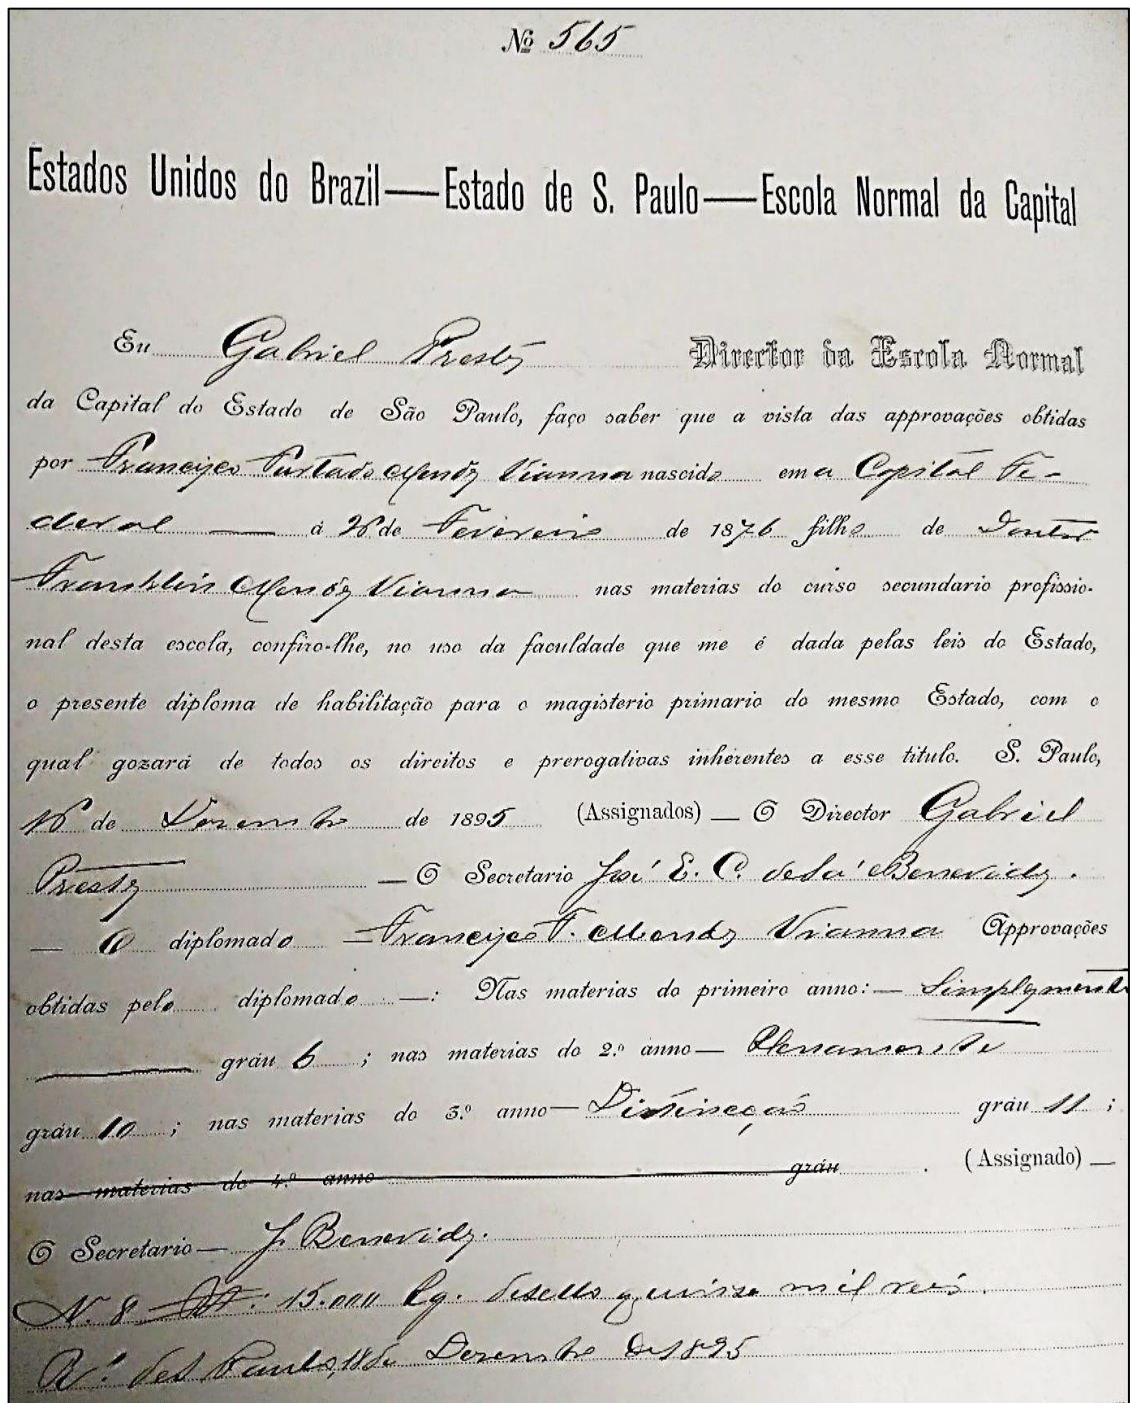 Nº 565
Estados Unidos do Brazil—Estado de S. Paulo—Escola Normal da Capital
Eu Gabriel Prestes Director da Escola Normal
da Capital do Estado de São Paulo, faço saber que a vista das approvações obtidas
por Francisco Furtado Mendes Vianna nascido em a Capital Fe-
deral — á 26 de Fevereiro de 1876 filho de Doutor
Franklin Mendes Vianna nas materias do curso secundario profissio-
nal desta escola, confiro-lhe, no uso da faculdade que me é dada pelas leis do Estado,
o presente diploma de habilitação para o magisterio primario do mesmo Estado, com o
qual gozará de todos os direitos e prerogativas inherentes a esse titulo. S. Paulo,
16 de Dezembro de 1895 (Assignados) — O Director Gabriel
Prestes — O Secretario José E. C. de Sá e Benevides.
— O diplomado — Francisco F. Mendes Vianna Approvações
obtidas pelo diplomado —: Nas materias do primeiro anno: — Simplesmente
— gráu 6 ; nas materias do 2.º anno — Plenamente
gráu 10 ; nas materias do 3.º anno — Distincção gráu 11 ;
nas materias do 4.º anno gráu . (Assignado) —
O Secretario — J. Benevides.
N. 8 15.000 Pg. de sello quinze mil reis.
de S Paulo, 18 de Dezembro de 1895